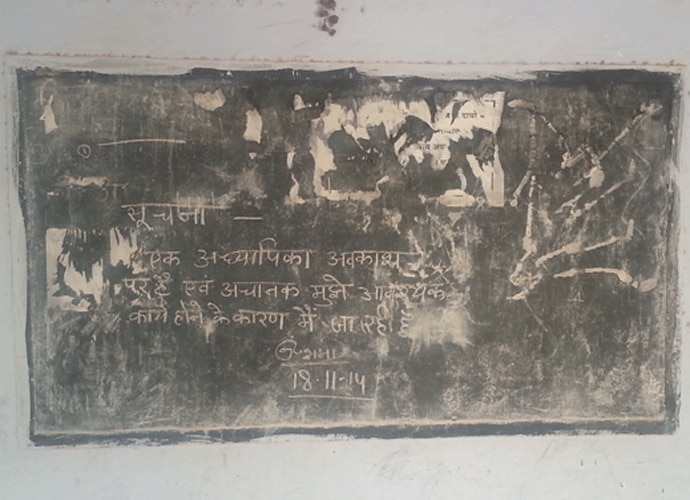 सूचना —
एक अध्यापिका अवकाश
पर है एवं अचानक मुझे आवश्यक
कार्य होने के कारण मैं जा रही हूँ
18-11-14